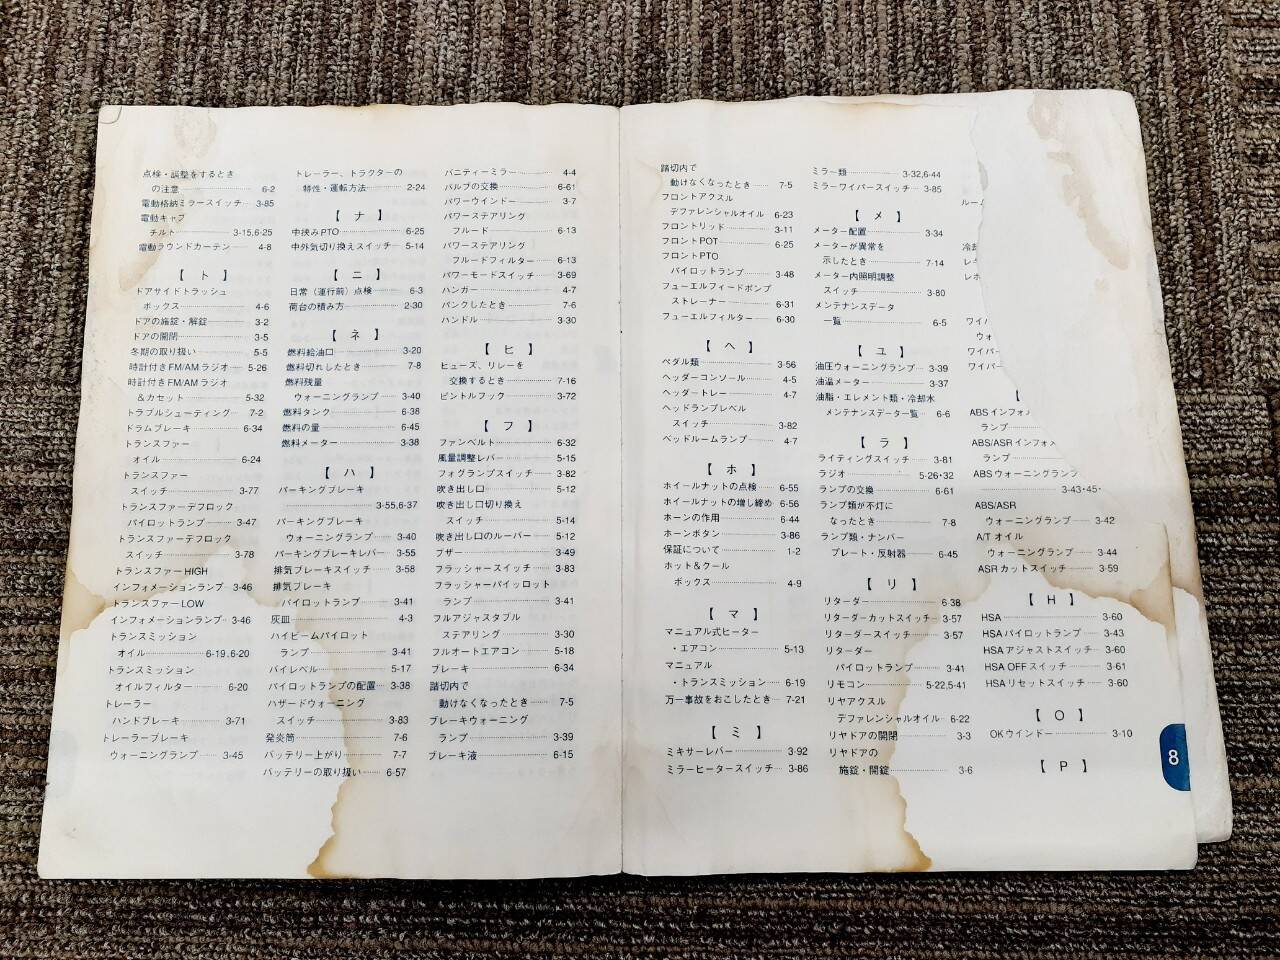 点検・調整をするとき
の注意 6-2
電動格納ミラースイッチ 3-85
電動キャブ
チルト 3-15,6-25
電動ラウンドカーテン 4-8
【 ト 】
ドアサイドトラッシュ
ボックス 4-6
ドアの施錠・解錠 3-2
ドアの開閉 3-5
冬期の取り扱い 5-5
時計付きFM/AMラジオ 5-26
時計付きFM/AMラジオ
&カセット 5-32
トラブルシューティング 7-2
ドラムブレーキ 6-34
トランスファー
オイル 6-24
トランスファー
スイッチ 3-77
トランスファーデフロック
パイロットランプ 3-47
トランスファーデフロック
スイッチ 3-78
トランスファーHIGH
インフォメーションランプ 3-46
トランスファーLOW
インフォメーションランプ 3-46
トランスミッション
オイル 6-19,6-20
トランスミッション
オイルフィルター 6-20
トレーラー
ハンドブレーキ 3-71
トレーラーブレーキ
ウォーニングランプ 3-45
トレーラー、トラクターの
特性・運転方法 2-24
【 ナ 】
中挟みPTO 6-25
中外気切り換えスイッチ 5-14
【 ニ 】
日常(運行前)点検 6-3
荷台の積み方 2-30
【 ネ 】
燃料給油口 3-20
燃料切れしたとき 7-8
燃料残量
ウォーニングランプ 3-40
燃料タンク 6-38
燃料の量 6-45
燃料メーター 3-38
【 ハ 】
パーキングブレーキ
3-55,6-37
パーキングブレーキ
ウォーニングランプ 3-40
パーキングブレーキレバー 3-55
排気ブレーキスイッチ 3-58
排気ブレーキ
パイロットランプ 3-41
灰皿 4-3
ハイビームパイロット
ランプ 3-41
バイレベル 5-17
パイロットランプの配置 3-38
ハザードウォーニング
スイッチ 3-83
発炎筒 7-6
バッテリー上がり 7-7
バッテリーの取り扱い 6-57
バニティーミラー 4-4
バルブの交換 6-61
パワーウインドー 3-7
パワーステアリング
フルード 6-13
パワーステアリング
フルードフィルター 6-13
パワーモードスイッチ 3-69
ハンガー 4-7
パンクしたとき 7-6
ハンドル 3-30
【 ヒ 】
ヒューズ、リレーを
交換するとき 7-16
ピントルフック 3-72
【 フ 】
ファンベルト 6-32
風量調整レバー 5-15
フォグランプスイッチ 3-82
吹き出し口 5-12
吹き出し口切り換え
スイッチ 5-14
吹き出し口のルーバー 5-12
ブザー 3-49
フラッシャースイッチ 3-83
フラッシャーパイロット
ランプ 3-41
フルアジャスタブル
ステアリング 3-30
フルオートエアコン 5-18
ブレーキ 6-34
踏切内で
動けなくなったとき 7-5
ブレーキウォーニング
ランプ 3-39
ブレーキ液 6-15
踏切内で
動けなくなったとき 7-5
フロントアクスル
デファレンシャルオイル 6-23
フロントリッド 3-11
フロントPOT 6-25
フロントPTO
パイロットランプ 3-48
フューエルフィードポンプ
ストレーナー 6-31
フューエルフィルター 6-30
【 ヘ 】
ペダル類 3-56
ヘッダーコンソール 4-5
ヘッダートレー 4-7
ヘッドランプレベル
スイッチ 3-82
ベッドルームランプ 4-7
【 ホ 】
ホイールナットの点検 6-55
ホイールナットの増し締め 6-56
ホーンの作用 6-44
ホーンボタン 3-86
保証について 1-2
ホット&クール
ボックス 4-9
【 マ 】
マニュアル式ヒーター
・エアコン 5-13
マニュアル
・トランスミッション 6-19
万一事故をおこしたとき 7-21
【 ミ 】
ミキサーレバー 3-92
ミラーヒータースイッチ 3-86
ミラー類 3-32,6-44
ミラーワイパースイッチ 3-85
【 メ 】
メーター配置 3-34
メーターが異常を
示したとき 7-14
メーター内照明調整
スイッチ 3-80
メンテナンスデータ
一覧 6-5
【 ユ 】
油圧ウォーニングランプ 3-39
油温メーター 3-37
油脂・エレメント類・冷却水
メンテナンスデータ一覧 6-6
【 ラ 】
ライティングスイッチ 3-81
ラジオ 5-26・32
ランプの交換 6-61
ランプ類が不灯に
なったとき 7-8
ランプ類・ナンバー
プレート・反射器 6-45
【 リ 】
リターダー 6-38
リターダーカットスイッチ 3-57
リタータースイッチ 3-57
リターダー
パイロットランプ 3-41
リモコン 5-22,5-41
リヤアクスル
デファレンシャルオイル 6-22
リヤドアの開閉 3-3
リヤドアの
施錠・開錠 3-6
ルーム
冷却
レ
レ
ワイパ
ウォ
ワイパー
ワイパー
【
ABSインフォメ
ランプ
ABS/ASRインフォメ
ランプ
ABSウォーニングランプ
3-43・45・
ABS/ASR
ウォーニングランプ 3-42
A/Tオイル
ウォーニングランプ 3-44
ASRカットスイッチ 3-59
【 H 】
HSA 3-60
HSAパイロットランプ 3-43
HSAアジャストスイッチ 3-60
HSA OFFスイッチ 3-61
HSAリセットスイッチ 3-60
【 O 】
OKウインドー 3-10
【 P 】
8